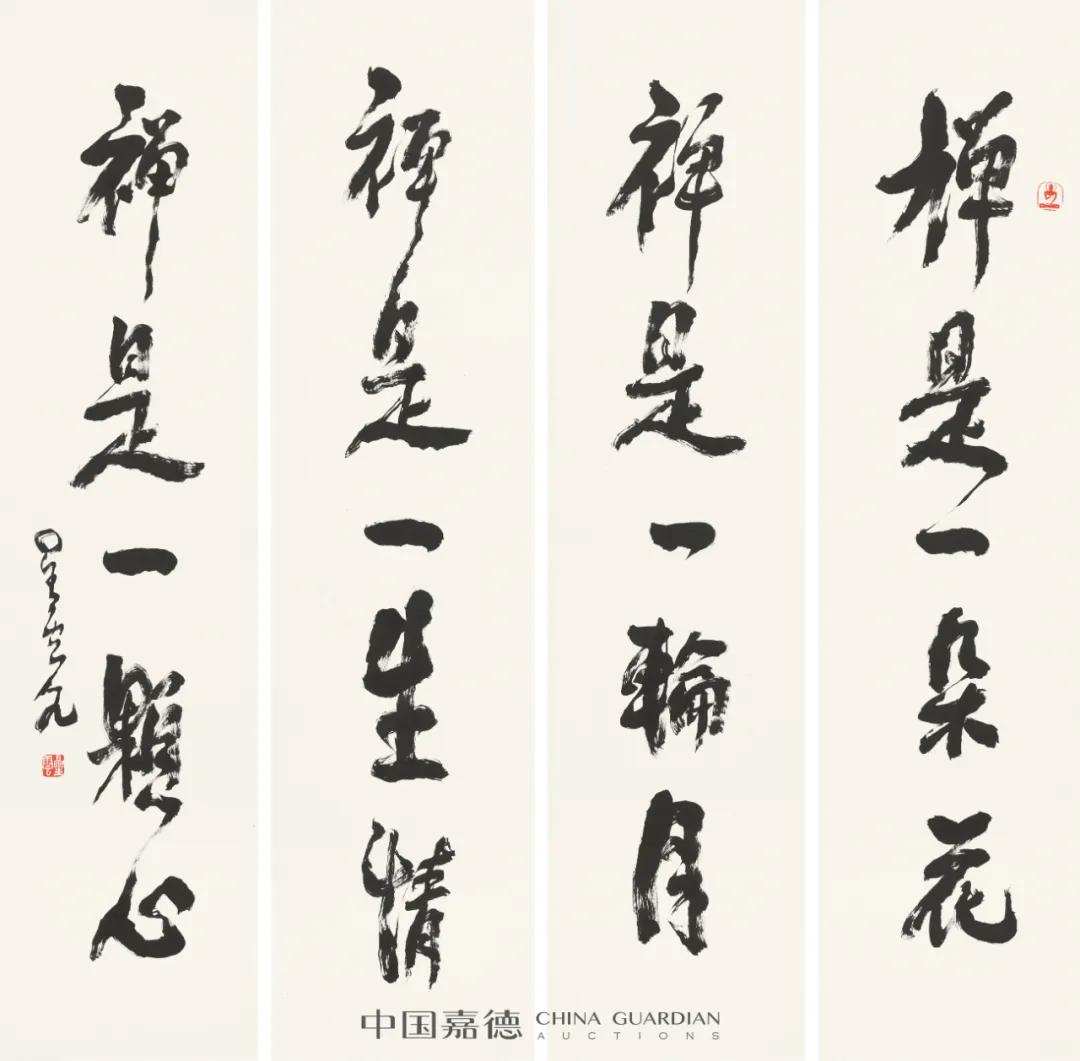 禪是一朵花
禪是一輪月
禪是一生情
禪是一顆心
星雲
中国嘉德 CHINA GUARDIAN
AUCTIONS